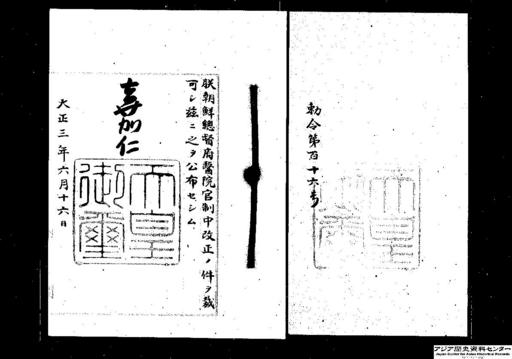 勅令第百十六号
朕朝鮮總督府醫院官制中改正ノ件ヲ裁
可シ玆ニ之ヲ公布セシム
嘉仁
天皇
御璽
大正三年六月十六日
アジア歴史資料センター
Japan Center for Asian Historical Records